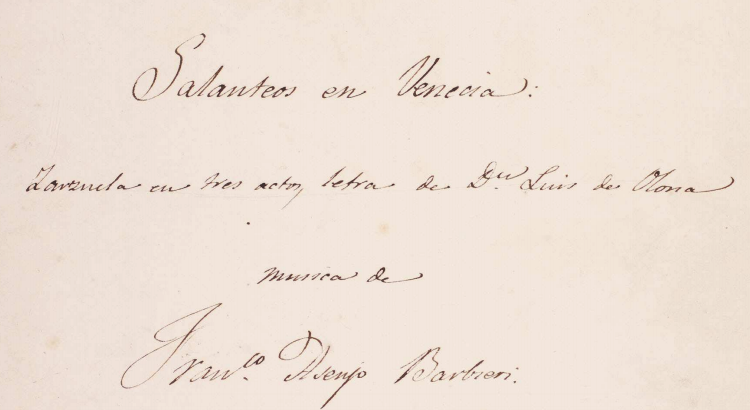 Galanteos en Venecia:
Zarzuela en tres actos, letra de D.n Luis de Olona
musica de
Fran.co Asenjo Barbieri.